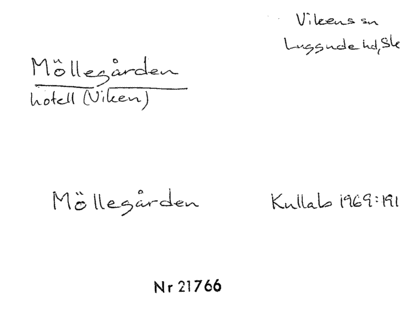 Vikens sn
Luggude hd, Sk
Möllegården
hotell (Viken)
Möllegården
Kullab 1969:191
Nr 21766